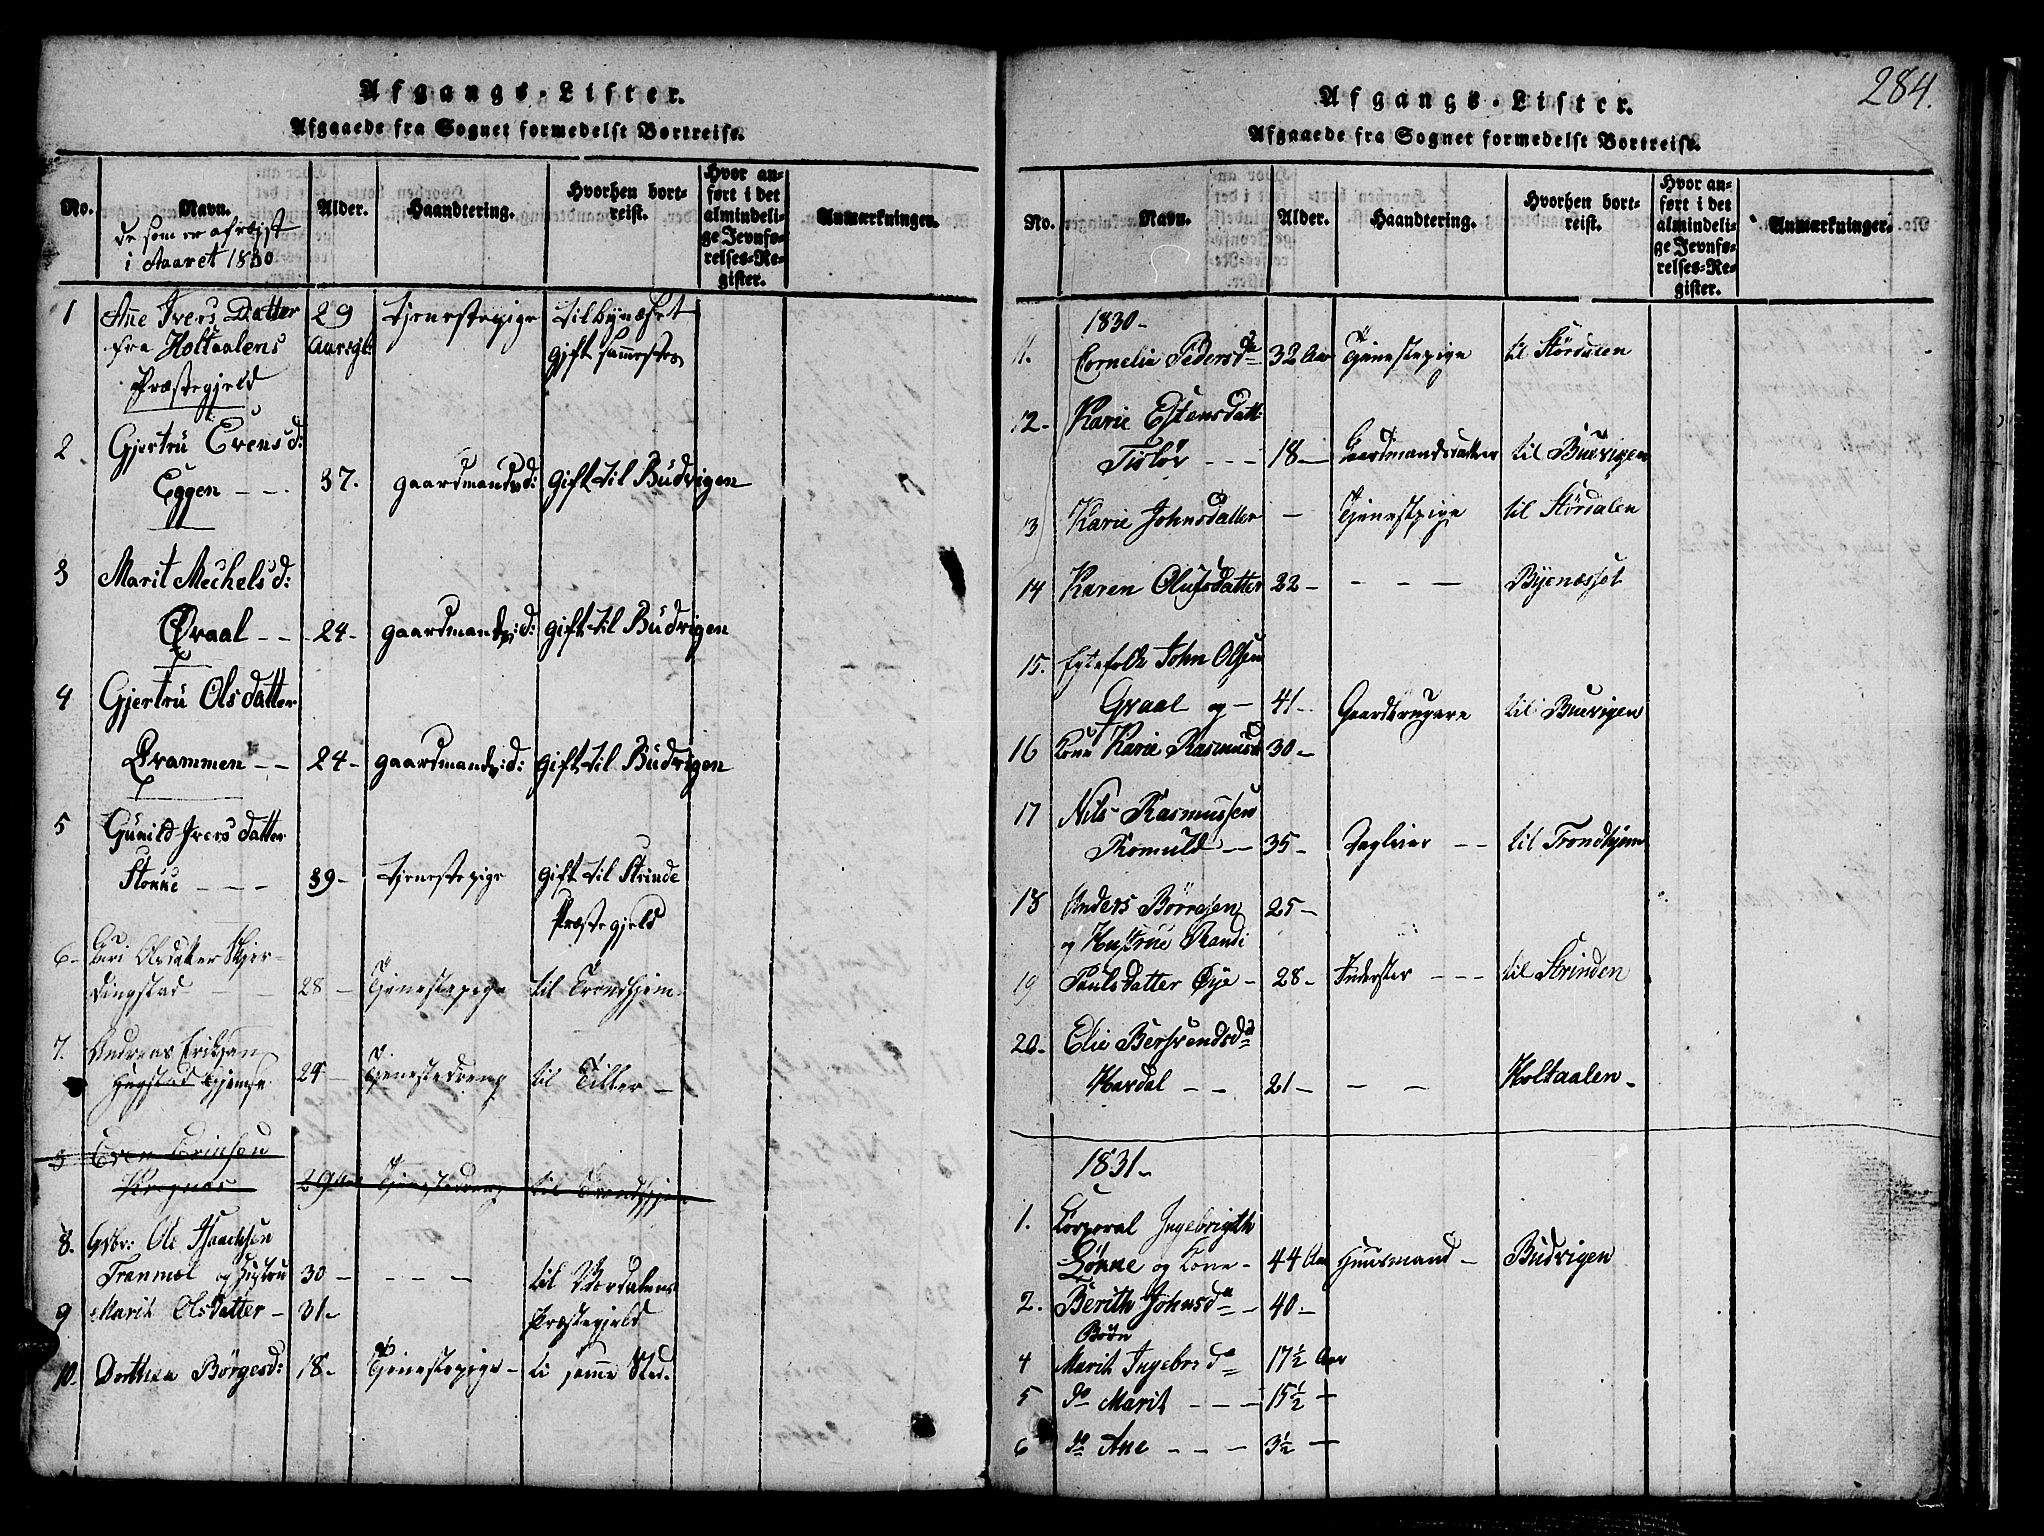 Afgangs-Lister.
Afgaaede fra Sognet formedelst Bortreise.
No. Navn. Alder. Haandtering. Hvorhen bortreist. Hvor anført i det almindelige Jevnførelses-Register. Anmærkninger.
de som er afreist
i Aaret 1830
1 Ane Ivers Datter 29 tjenestepige til Bynæset
fra Holtaalens Aar gl: gift sammestes
Præstegjeld
2 Gjertru Evens d:
Eggen - - - 37. gaardmands d: gift til Budvigen
3 Marit Mechels d:
Qvaal - - 24 - gaardmands d: gift til Budvigen
4 Gjertru Ols datter
Qvammen - - 24 - gaardmands d: gift til Budvigen
5 Gunild Ivers datter
Stokke - - - 39 - tjenestepige gift til Strinde
Præstegjeld
6 - Guri Olsdatter Skjer-
dingstad - - 28 - Tjenestepige til Trondhjem -
7. Andreas Eriksen
Hugstad Gjemse 24 - Tjenestedreng til Tiller -
8 Even Erichsen
Kregnes 29 Tjenestedreng til Trondhjem
8. Gbr: Ole Isaachsen
Tranmæl og Hustru 30 - - - - til Værdalens
9 Marit Olsdatter - 31 - Præstegjeld
10. Dorthea Børgesd: 18 - Tjenestepige - ti samme Sted.
284.
Afgangs-Lister.
Afgaaede fra Sognet formedelst Bortreise.
No. Navn. Alder. Haandtering. Hvorhen bortreist. Hvor anført i det almindelige Jevnførelses-Register. Anmærkninger.
1830 -
11. Cornelia Pedersdr 32 Aar Tjenestepige til Størdalen
12 - Karie Estensdatt:
Tisløv - - - 18 - Gaardmandsdatter til Budvigen
13 Karie Johnsdatter - Tjenestpige til Størdalen
14 Karen Olufsdatter 22 - - - - Byenæsset
15. Egtefolk John Olsen
Qvaal og - 41 - Gaardbrugere til Buevigen
16 Kone Karie Rasmusd 30 -
17 Nils Rasmussen
Romuld - - 35 - Dagleier - - til Trondhjem
18 Anders Børresen 25 -
og Hustrue Randi
19 Paulsdatter Øye - 28 - Inderster - - - til Strinden
20 - Elie Bersvendsdr
Hardal - - 21 - - - Holtaalen -
1831 -
1. Corporal Ingebrigth
Løkke og Kone - 44 Aar Huusmand - Budvigen
2. Berith Johnsdr - 40 -
Børn
4 Marit Ingebr dr 17 1/2 Aar
5 do Marit - - - 15 1/2 -
6 do Ane - - - 3 1/2 -